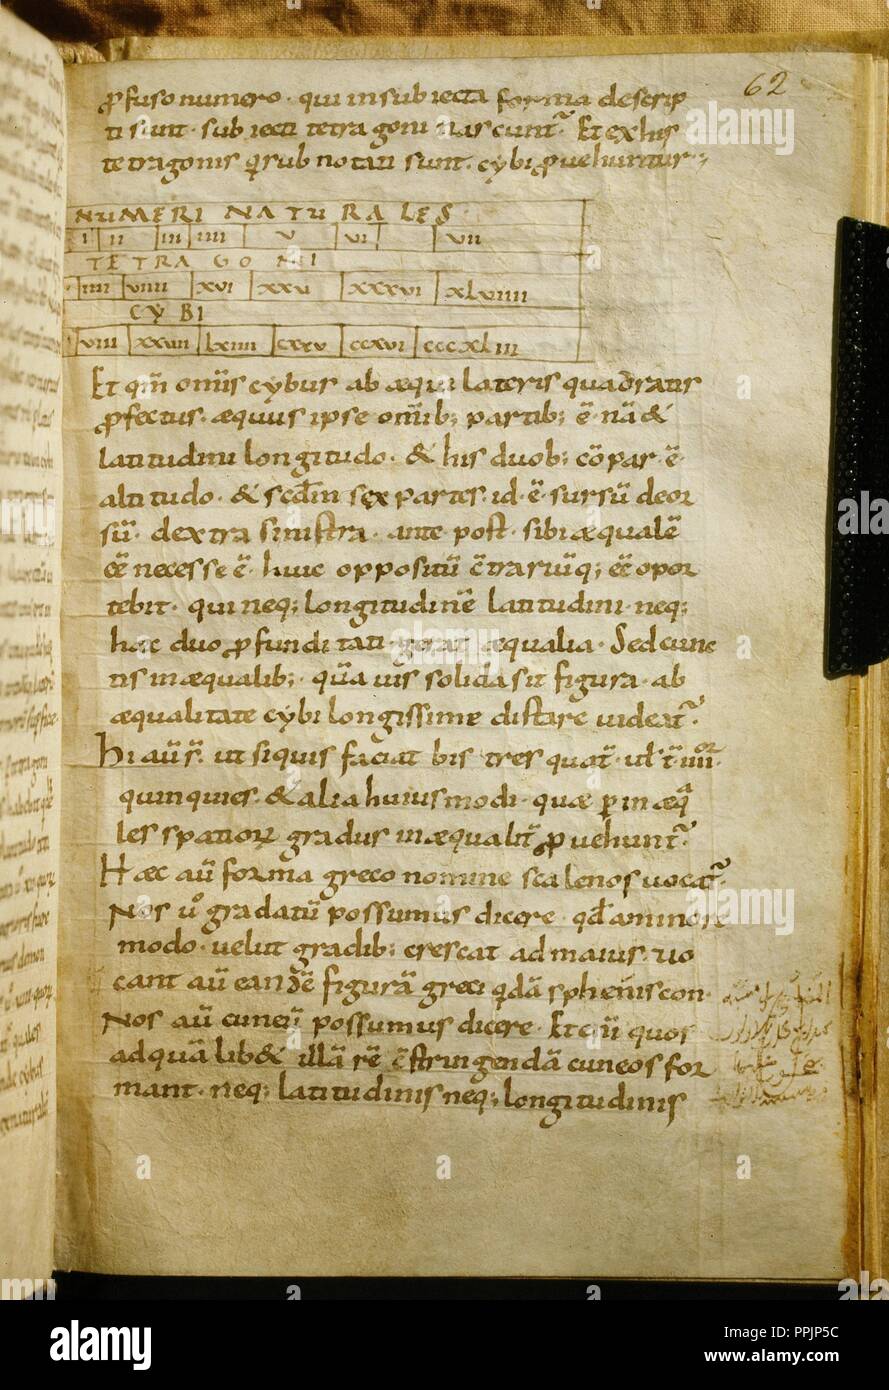 62
ꝓfuso numero · qui in subiecta forma descrip
ti sunt · subiecti tetragoni nascunt᷑. Et ex his
tetragonis q̇ sub notati sunt. cybi ꝓuehuntur;
NUMERI NATURALES
i ii iii iiii v vi vii
TETRAGONI
iiii viiii xvi xxv xxxvi xlviiii
CYBI
viii xxvii lxiiii cxxv ccxvi cccxliii
Et qm̄ omīs cybus ab æqui lateris quadratis
ꝓfectus. æquus ipse omīb; partib; ē. nā &
latitudini longitudo · & his duob; cōpar ē
altitudo · & scdm̄ sex partes · id · ē · sursū deor
sū · dextra sinistra · ante post · sibi æqualē
ēē necesse ē · huic oppositū c̄trariūq; ēē opor
tebit · qui neq; longitudinē latitudini · neq;
hæc duo ꝓfunditati · gerat æqualia · Sed cunc
tis inæqualib; · quāuis solida sit figura · ab
æqualitate cybi longissime distare uideat᷑.
Hi aū s̄. ut si quis faciat bis tres quat᷑ · ul̄ t̄ iiiior
quinquies · & alia huiusmodi · quæ p̱ inæq̄
les spatioꝝ gradus inæqualit̄ ꝓuehunt᷑.
Hæc aū forma greco nomine scalenos uocat᷑.
Nos ů gradatū possumus dicere · qđ a minore
modo · uelut gradib; crescat ad maius. uo
cant aū eandē figurā greci qdā spheniscon ·
Nos aū cuneū possumus dicere · Et eū quos
ad quālib& illā rē c̄stringendā cuneos for
mant · neq; latitudinis neq; longitudinis
alamy
PPJP5C
www.alamy.com